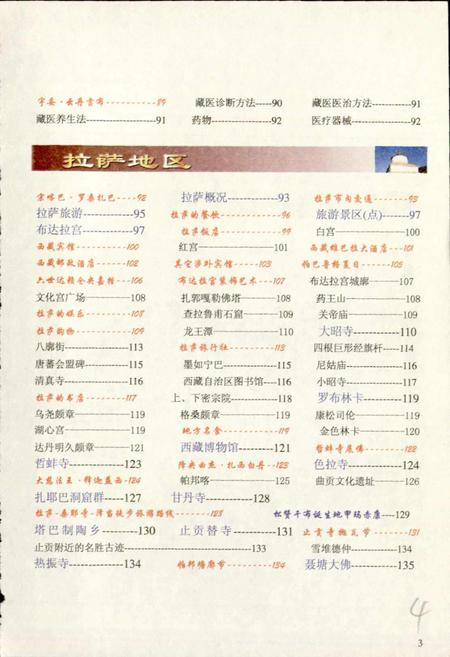 宇妥·云丹贡布----------89 藏医诊断方法-----90 藏医医治方法--------91
藏医养生法--------------91 药物------------92 医疗器械------------92
拉萨地区
宗喀巴·罗桑扎巴--92 拉萨概况--------93 拉萨市内交通----93
拉萨旅游-----------95 拉萨的餐饮--------96 旅游景区(点)------97
布达拉宫-----------97 拉萨饭店--------99 白宫------------100
西藏宾馆--------100 红宫--------------101 西藏雅巴拉大酒店---101
西藏邮政酒店------102 其它涉外宾馆---103 帕巴鲁格夏日------105
六世达赖仓央嘉措---106 布达拉宫装饰艺术---107 布达拉宫城廓------107
文化宫广场----------108 扎郭嘎勒佛塔------108 药王山-----------108
拉萨的娱乐------108 查拉鲁甫石窟-----109 关帝庙----------109
拉萨购物--------109 龙王潭----------110 大昭寺---------110
八廓街-------------113 拉萨旅行社-----113 四根巨形经旗杆----114
唐蕃会盟碑---------115 墨如宁巴--------115 尼姑庙----------116
清真寺-------------116 西藏自治区图书馆----116 小昭寺----------117
拉萨的书店------117 上、下密宗院-------118 罗布林卡--------119
乌尧颇章-----------119 格桑颇章--------119 康松司伦---------119
湖心宫------------119 地方名食-------119 金色林卡--------120
达丹明久颇章-------121 西藏博物馆-------121 哲蚌寺展佛------122
哲蚌寺-----------123 降央曲杰·扎西白丹--123 色拉寺---------124
大慈法王·释迦益西-124 帕邦喀----------125 曲贡文化遗址-----126
扎耶巴洞窟群----127 甘丹寺--------128
拉萨-桑耶寺-泽当徒步旅游路线-------128 松赞干布诞生地甲玛赤康---129
塔巴制陶乡-------130 止贡替寺-------131 止贡寺抛瓦节----131
止贡附近的名胜古迹------------------------133 雪堆德仲---------134
热振寺-----------134 帕邦塘廓节------134 聂塘大佛-------135
4
3